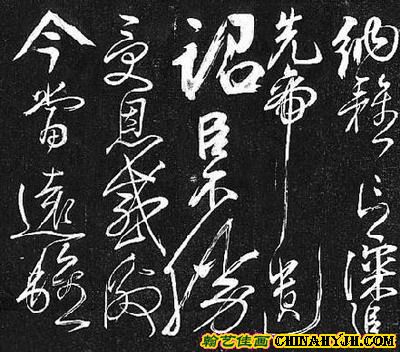 納雅言深追
先帝遺
詔臣不勝
受恩感激
今當遠離
翰艺佳画 CHINAHYJH.COM